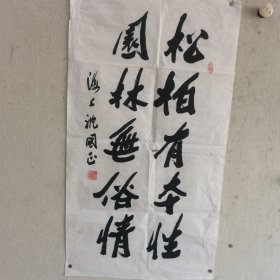 松柏有本性
園林無俗情
海上沈國正